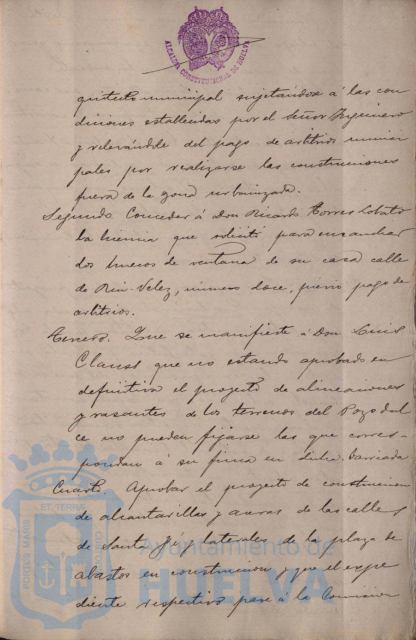 ALCALDIA CONSTITUCIONAL DE HUELVA
quitecto municipal sujetandose á las con
diciones establecidas por el Señor Ingeniero
y relevándole del pago de arbitrios munici
pales por realizarse las construcciones
fuera de la zona urbanizada.
Segundo. Conceder á Don Ricardo Torres Lobato
la licencia que solicitó para ensanchar
dos huecos de ventana de su casa calle
de Rui-Velez, número doce, previo pago de
arbitrios.
Tercero. Que se manifieste á Don Luis
Clauss que no estando aprobado en
definitiva el proyecto de alineaciones
y rasantes de los terrenos del Pozo dul
ce no pueden fijarse las que corres-
pondan á su finca en dicha barriada
Cuarto. Aprobar el proyecto de construccion
de alcantarillas y aceras de las calles
de Santa Fé y laterales de la plaza de
abastos en construccion y que el expe
diente respectivo pase á la Comision
PORTUS MARIS ET TERRAE CUSTODIO
Ayuntamiento de
HUELVA